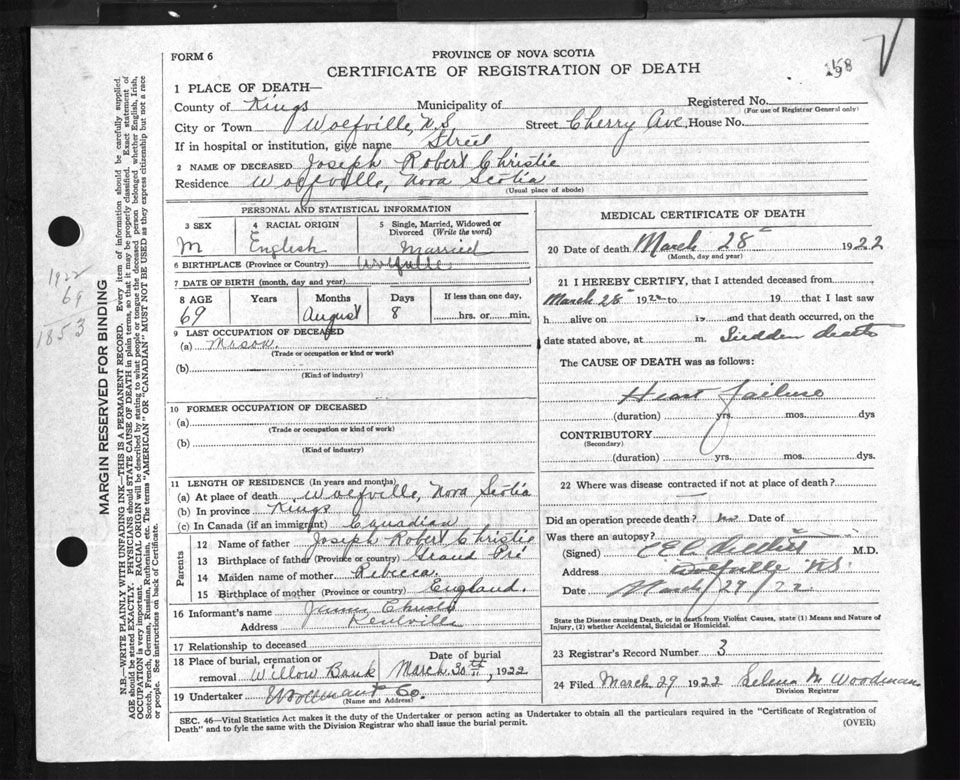 FORM 6
PROVINCE OF NOVA SCOTIA
CERTIFICATE OF REGISTRATION OF DEATH
1 PLACE OF DEATH—
County of Kings Municipality of Registered No.
(For use of Registrar General only)
City or Town Wolfville, N.S. Street Cherry Ave, House No.
If in hospital or institution, give name Street
2 NAME OF DECEASED Joseph Robert Christie
Residence Wolfville, Nova Scotia
(Usual place of abode)
PERSONAL AND STATISTICAL INFORMATION
3 SEX 4 RACIAL ORIGIN 5 Single, Married, Widowed or Divorced (Write the word)
M English Married
6 BIRTHPLACE (Province or Country) Wolfville
7 DATE OF BIRTH (month, day and year)
8 AGE Years Months Days If less than one day,
69 August 8 hrs. or min.
9 LAST OCCUPATION OF DECEASED
(a) Mason.
(Trade or occupation or kind or work)
(b)
(Kind of industry)
10 FORMER OCCUPATION OF DECEASED
(a)
(Trade or occupation or kind of work)
(b)
(Kind of industry)
11 LENGTH OF RESIDENCE (In years and months)
(a) At place of death Wolfville, Nova Scotia
(b) In province Kings
(c) In Canada (if an immigrant) Canadian
Parents
12 Name of father Joseph Robert Christie
13 Birthplace of father (Province or country) Grand Pré
14 Maiden name of mother Rebecca.
15 Birthplace of mother (Province or country) England.
16 Informant's name Christie
Address Kentville
17 Relationship to deceased
18 Place of burial, cremation or removal Willow Bank Date of burial March 30th, 1922
19 Undertaker Co.
(Name and Address)
MEDICAL CERTIFICATE OF DEATH
20 Date of death March 28 1922
(Month, day and year)
21 I HEREBY CERTIFY, that I attended deceased from
March 28 1922 to 19 that I last saw
h alive on 19 and that death occurred, on the
date stated above, at m. Sudden death
The CAUSE OF DEATH was as follows:
Heart failure
(duration) yrs. mos. dys
CONTRIBUTORY
(Secondary)
(duration) yrs. mos. dys.
22 Where was disease contracted if not at place of death?
Did an operation precede death? no Date of
Was there an autopsy?
(Signed) M.D.
Address Wolfville N.S.
Date March/29/22
State the Disease causing Death, or in death from Violent Causes, state (1) Means and Nature of Injury, (2) whether Accidental, Suicidal or Homicidal.
23 Registrar's Record Number 3
24 Filed March 29 1922 Selena M Woodman
Division Registrar
SEC. 46—Vital Statistics Act makes it the duty of the Undertaker or person acting as Undertaker to obtain all the particulars required in the "Certificate of Registration of
Death" and to fyle the same with the Division Registrar who shall issue the burial permit.
(OVER)
1922
69
1853
MARGIN RESERVED FOR BINDING
N.B.—WRITE PLAINLY WITH UNFADING INK—THIS IS A PERMANENT RECORD. Every item of information should be carefully supplied.
AGE should be stated EXACTLY. PHYSICIANS should STATE CAUSE OF DEATH in plain terms, so that it may be properly classified. Exact statement of
OCCUPATION is very important. RACIAL ORIGIN will be described by stating to what people or tongue the deceased person belonged whether English, Irish,
Scotch, French, German, Russian, Ruthenian, etc. The terms "AMERICAN" OR "CANADIAN" MUST NOT BE USED as they express citizenship but not a race
or people. See instructions on back of Certificate.